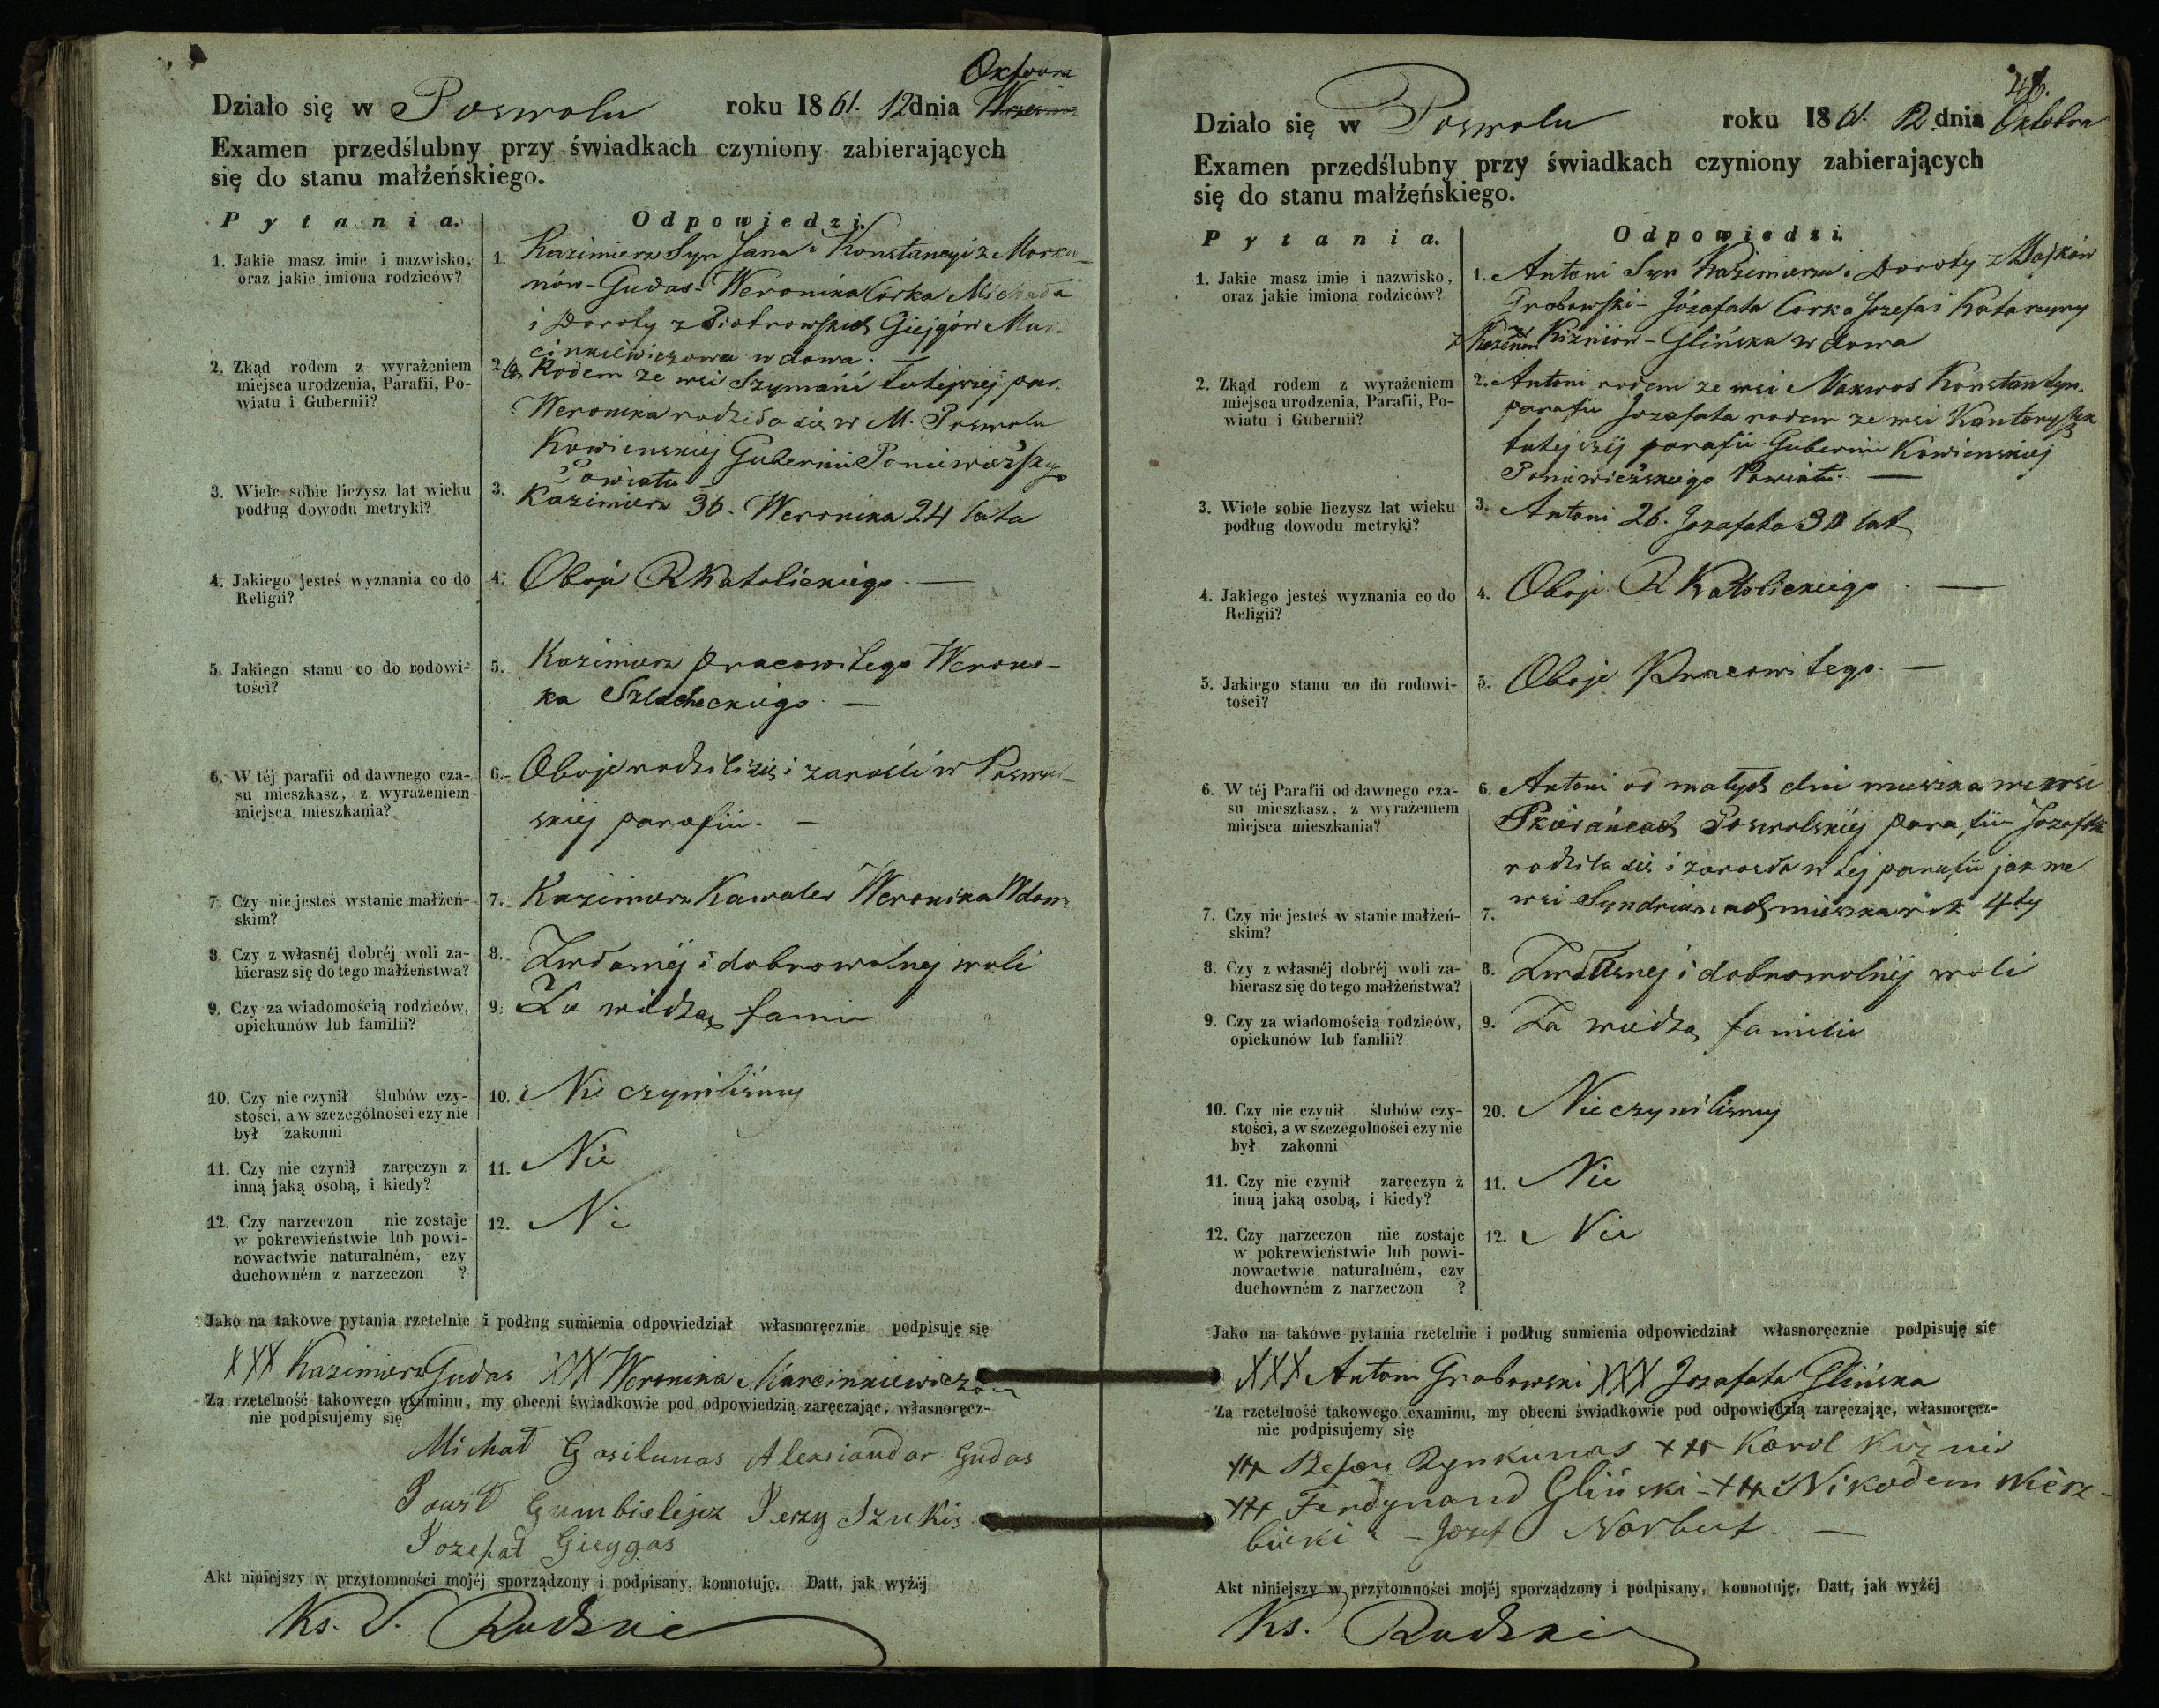 Oktobra
Działo się w Poswolu roku 1861. 12 dnia
Examen przedślubny przy świadkach czyniony zabierających
się do stanu małżeńskiego.
Pytania. Odpowiedzi.
1. Jakie masz imie i nazwisko,
oraz jakie imiona rodziców?
1. Kazimierz Syn Jana i Konstancyi z Marka-
nów - Gudas - Weronika Córka Michała
i Doroty z Piotrowskich Giejgów Mar-
cinkiewiczowa wdowa. —
2. Zkąd rodem z wyrażeniem
miejsca urodzenia, Parafii, Po-
wiatu i Gubernii?
2. Rodem ze wsi Szymańi tutejszej par.
Weronika rodziła się w M. Poswolu
Kowienskiej Gubernii Poniewieżskego
Powiatu —
3. Wiele sobie liczysz lat wieku
podług dowodu metryki?
3. Kazimierz 36. Weronika 24 lata
4. Jakiego jesteś wyznania co do
Religii?
4. Oboje R Katolickiego. —
5. Jakiego stanu co do rodowi-
tości?
5. Kazimierz pracowitego Weroni-
ka Szlacheckiego. —
6. W téj parafii od dawnego cza-
su mieszkasz, z wyrażeniem
miejsca mieszkania?
6. Oboje rodzili się i zarośli w Poswol-
skiej parafii. —
7. Czy nie jesteś w stanie małżeń-
skim?
7. Kazimierz Kawaler Weronika Wdow
8. Czy z własnéj dobréj woli za-
bierasz się do tego małżeństwa?
8. Zwłasnéj i dobrowolnej woli
9. Czy za wiadomością rodziców,
opiekunów lub familii?
9. Za wiedzą
10. Czy nie czynił ślubów czy-
stości, a w szczególności czy nie
był zakonni
10. Nie czyniliśmy
11. Czy nie czynił zaręczyn z
inną jaką osobą, i kiedy?
11. Nie
12. Czy narzeczon nie zostaje
w pokrewieństwie lub powi-
nowactwie naturalném, czy
duchowném z narzeczon ?
12. Ni
Jako na takowe pytania rzetelnie i podług sumienia odpowiedział własnoręcznie podpisuję się
XXX Kazimierz Gudas XXX Weronika Marcinkiewiczowa
Za rzetelność takowego examinu, my obecni świadkowie pod odpowiedzią zaręczając, własnoręcz-
nie podpisujemy się
Michał Gasilunas Aleksiandar Gudas
Paweł Gumbielejcz Jerzy Szukis
Jozefat Gieygas
Akt niniejszy w przytomności mojéj sporządzony i podpisany, konnotuję. Datt, jak wyźéj
Ks. J. Rudzki
Działo się w Poswolu roku 1861. 12 dnia Oktobra
Examen przedślubny przy świadkach czyniony zabierających
się do stanu małżeńskiego.
Pytania. Odpowiedzi.
1. Jakie masz imie i nazwisko,
oraz jakie imiona rodziców?
1. Antoni Syn Kazimierza i Doroty z Majków
Grabowski - Józafata Corka Jozefa i Katarzyny
Kiżniów - Glińska wdowa
2. Zkąd rodem z wyrażeniem
miejsca urodzenia, Parafii, Po-
wiatu i Gubernii?
2. Antoni rodem ze wsi Konstantyn.
parafii Jozafata rodem ze wsi
tutejszéj parafii Gubernii Kowienskiej
Poniewieżskiego Powiatu. —
3. Wiele sobie liczysz lat wieku
podług dowodu metryki?
3. Antoni 26. Jozafata 30 lat
4. Jakiego jesteś wyznania co do
Religii?
4. Oboje R Katolickiego. —
5. Jakiego stanu co do rodowi-
tości?
5. Oboje Pracowitego. —
6. W téj Parafii od dawnego cza-
su mieszkasz, z wyrażeniem
miejsca mieszkania?
6. Antoni od małych dni mieszka we wsi
Poswolskiéj parafii Jozafata
rodziła się i zarosła w tej parafii jak we
wsi mieszka rok 4ty
7. Czy nie jesteś w stanie małżeń-
skim?
7.
8. Czy z własnéj dobréj woli za-
bierasz się do tego małżeństwa?
8. Zwłasnej i dobrowolnéj woli
9. Czy za wiadomością rodziców,
opiekunów lub famlii?
9. Za wiedzą familii
10. Czy nie czynił ślubów czy-
stości, a w szczególności czy nie
był zakonni
20. Nie czynilismy
11. Czy nie czynił zaręczyn ż
inuą jaką osobą, i kiedy?
11. Nie
12. Czy narzeczon nie zostaje
w pokrewieństwie lub powi-
nowactwie naturalném, czy
duchowném z narzeczon ?
12. Nie
Jako na takowe pytania rzetelnie i podług sumienia odpowiedział własnoręcznie podpisuję się
XXX Antoni Grabowski XXX Jozafata Glińska
Za rzetelność takowego examinu, my obecni świadkowie pod odpowiedzią zaręczając, własnoręcz-
nie podpisujemy się
xxx Stefan Rynkunas xxx Karol Kiżnis
xxx Ferdynand Gliński - xxx Nikodem Wierz-
bicki - Jozef Norbut. —
Akt niniejszy w przytomności mojéj sporządzony i podpisany, konnotuję, Datt, jak wyźéj
Ks. Rudzki